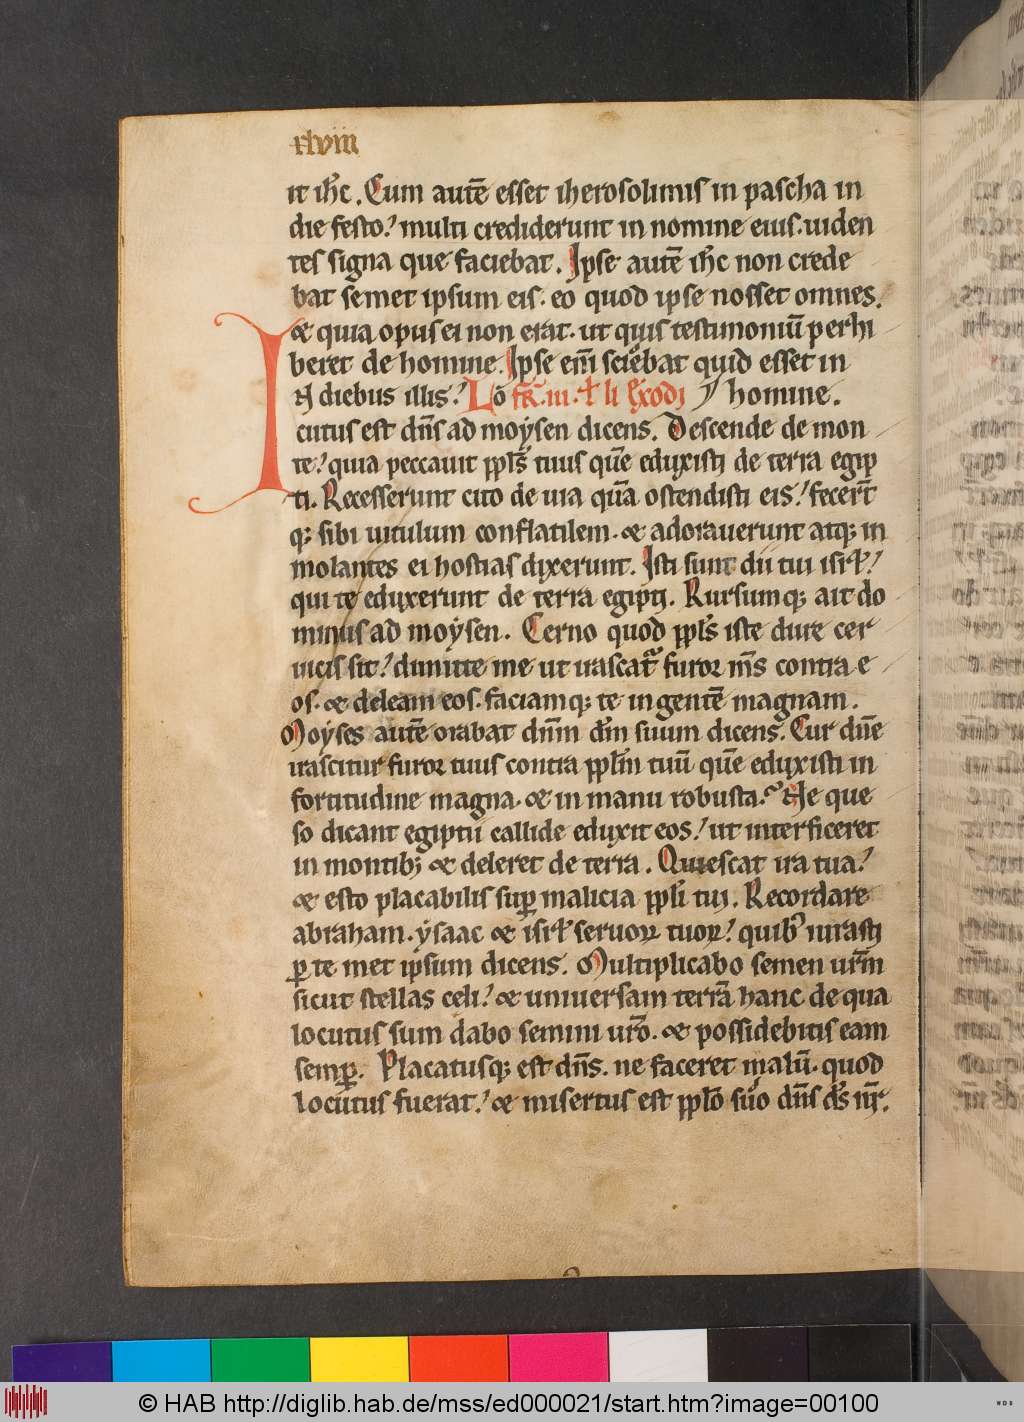 xlviii
it ih̅c. Cum aute̅ esset iherosolimis in pascha in
die festo? multi crediderunt in nomine eius. uiden
tes signa que faciebat. Ipse aute̅ ih̅c non crede
bat semet ipsum eis. eo quod ipse nosset omnes.
& quia opus ei non erat. ut quis testimoniu̅ perhi
beret de homine. Ipse em̅ sciebat quid esset in
IN diebus illis? Lo̅ fr̅. iii. homine.
cutus est dn̅s ad moẏsen dicens. Descende de mon
te? quia peccauit ppl̅s tuus que̅ eduxisti de terra egip
ti. Recesserunt cito de uia qua̅ ostendisti eis? fecer̅t
q; sibi uitulum conflatilem. & adorauerunt atq; in
molantes ei hostias dixerunt. Isti sunt dii tui isrl̅?
qui te eduxerunt de terra egipti. Rursumq; ait do
minus ad moẏsen. Cerno quod ppl̅s iste dure cer
uicis sit? dimitte me ut irascat̅ furor m̅s contra e
os. & deleam eos. faciamq; te in gente̅ magnam.
Moẏses aute̅ orabat dn̅m dm̅ suum dicens. Cur dn̅e
irascitur furor tuus contra ppl̅m tuu̅ que̅ eduxisti in
fortitudine magna. & in manu robusta? Ne que
so dicant egiptii callide eduxit eos? ut interficeret
in montib; & deleret de terra. Quiescat ira tua?
& esto placabilis sup̅ malicia ppl̅i tui. Recordare
abraham. ẏsaac & isrl̅ seruoꝝ tuoꝝ? quib᾽ iurasti
ꝑ te met ipsum dicens. Multiplicabo semen ur̅m
sicut stellas celi? & uniuersam terra̅ hanc de qua
locutus sum dabo semini ur̅o. & possidebitis eam
semꝑ. Placatusq; est dn̅s. ne faceret malu̅. quod
locutus fuerat? & misertus est ppl̅o suo dn̅s ds̅ nr̅.
© HAB http://diglib.hab.de/mss/ed000021/start.htm?image=00100